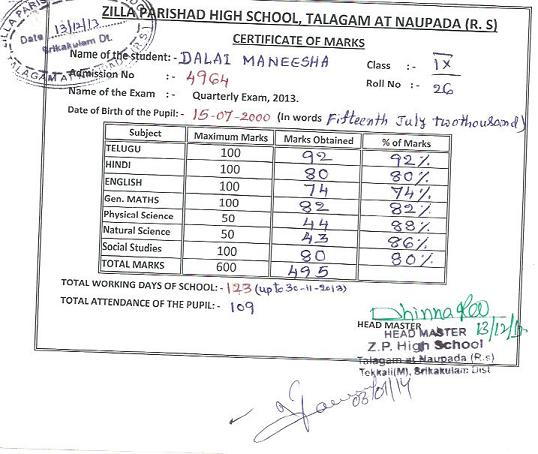 ZILLA PARISHAD HIGH SCHOOL, TALAGAM AT NAUPADA (R. S)
CERTIFICATE OF MARKS
ZILLA PARIS
Date 13/12/13
Srikakulam Dt.
TALAGAM AT
Name of the student:- DALAI MANEESHA Class :- IX
Admission No :- 4964 Roll No :- 26
Name of the Exam :- Quarterly Exam, 2013.
Date of Birth of the Pupil:- 15-07-2000 (In words Fifteenth July twothousand)
Subject Maximum Marks Marks Obtained % of Marks
TELUGU 100 92 92%
HINDI 100 80 80%
ENGLISH 100 74 74%
Gen. MATHS 100 82 82%
Physical Science 50 44 88%
Natural Science 50 43 86%
Social Studies 100 80 80%
TOTAL MARKS 600 495
TOTAL WORKING DAYS OF SCHOOL:- 123 (upto 30-11-2013)
TOTAL ATTENDANCE OF THE PUPIL:- 109
HEAD MASTER 13/12/13
HEAD MASTER
Z.P. High School
Talagam at Naupada (R.s)
Tekkali(M), Srikakulam Dist
03/01/14